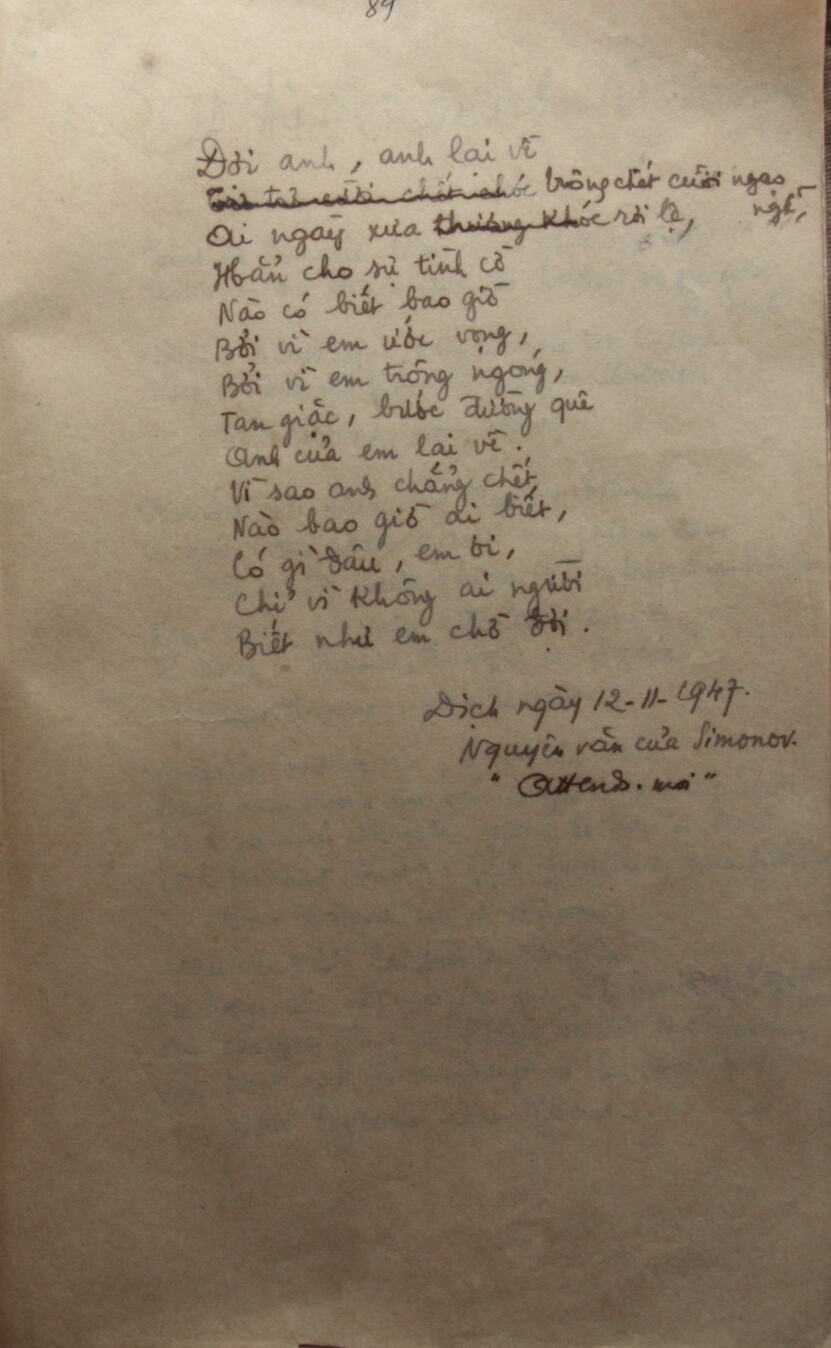 89
Đợi anh, anh lại về
Trông chết cười ngạo nghễ,
Ai ngày xưa rơi lệ,
Hẳn cho sự tình cờ
Nào có biết bao giờ
Bởi vì em ước vọng,
Bởi vì em trông ngóng,
Tan giặc, bước đường quê
Anh của em lại về.
Vì sao anh chẳng chết,
Nào bao giờ ai biết,
Có gì đâu, em ơi,
Chỉ vì không ai người
Biết như em chờ đợi.
Dịch ngày 12-11-1947.
Nguyên văn của Simonov.
"Attends-moi"